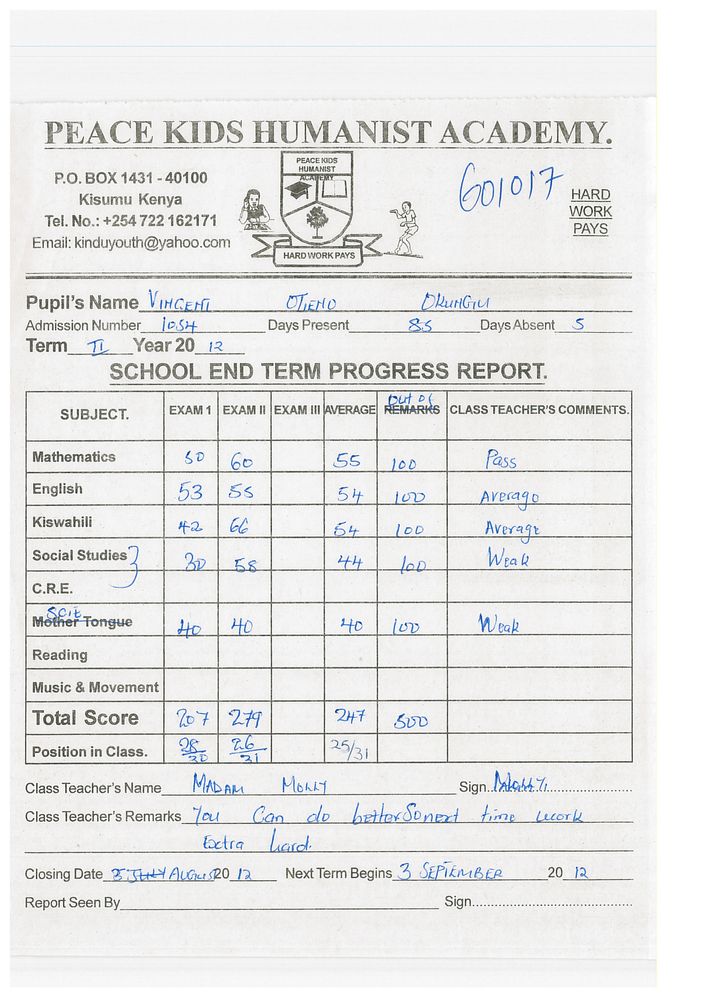 PEACE KIDS HUMANIST ACADEMY.
P.O. BOX 1431 - 40100
Kisumu Kenya
Tel. No.: +254 722 162171
Email: kinduyouth@yahoo.com
PEACE KIDS
HUMANIST
ACADEMY
HARD WORK PAYS
601017
HARD
WORK
PAYS
Pupil's Name VINCENT OTIENO OKUNGU
Admission Number 1054 Days Present 85 Days Absent 5
Term II Year 20 12
SCHOOL END TERM PROGRESS REPORT.
SUBJECT. EXAM 1 EXAM II EXAM III AVERAGE out of REMARKS CLASS TEACHER'S COMMENTS.
Mathematics 50 60 55 100 Pass
English 53 55 54 100 Average
Kiswahili 42 66 54 100 Average
Social Studies 30 58 44 100 Weak
C.R.E.
Scie.
Mother Tongue 40 40 40 100 Weak
Reading
Music & Movement
Total Score 207 279 247 500
Position in Class. 28/30 26/31 25/31
Class Teacher's Name MADAM MOLLY Sign.
Class Teacher's Remarks You Can do better So next time work
Extra hard.
Closing Date AUGUST 20 12 Next Term Begins 3 SEPTEMBER 20 12
Report Seen By Sign.